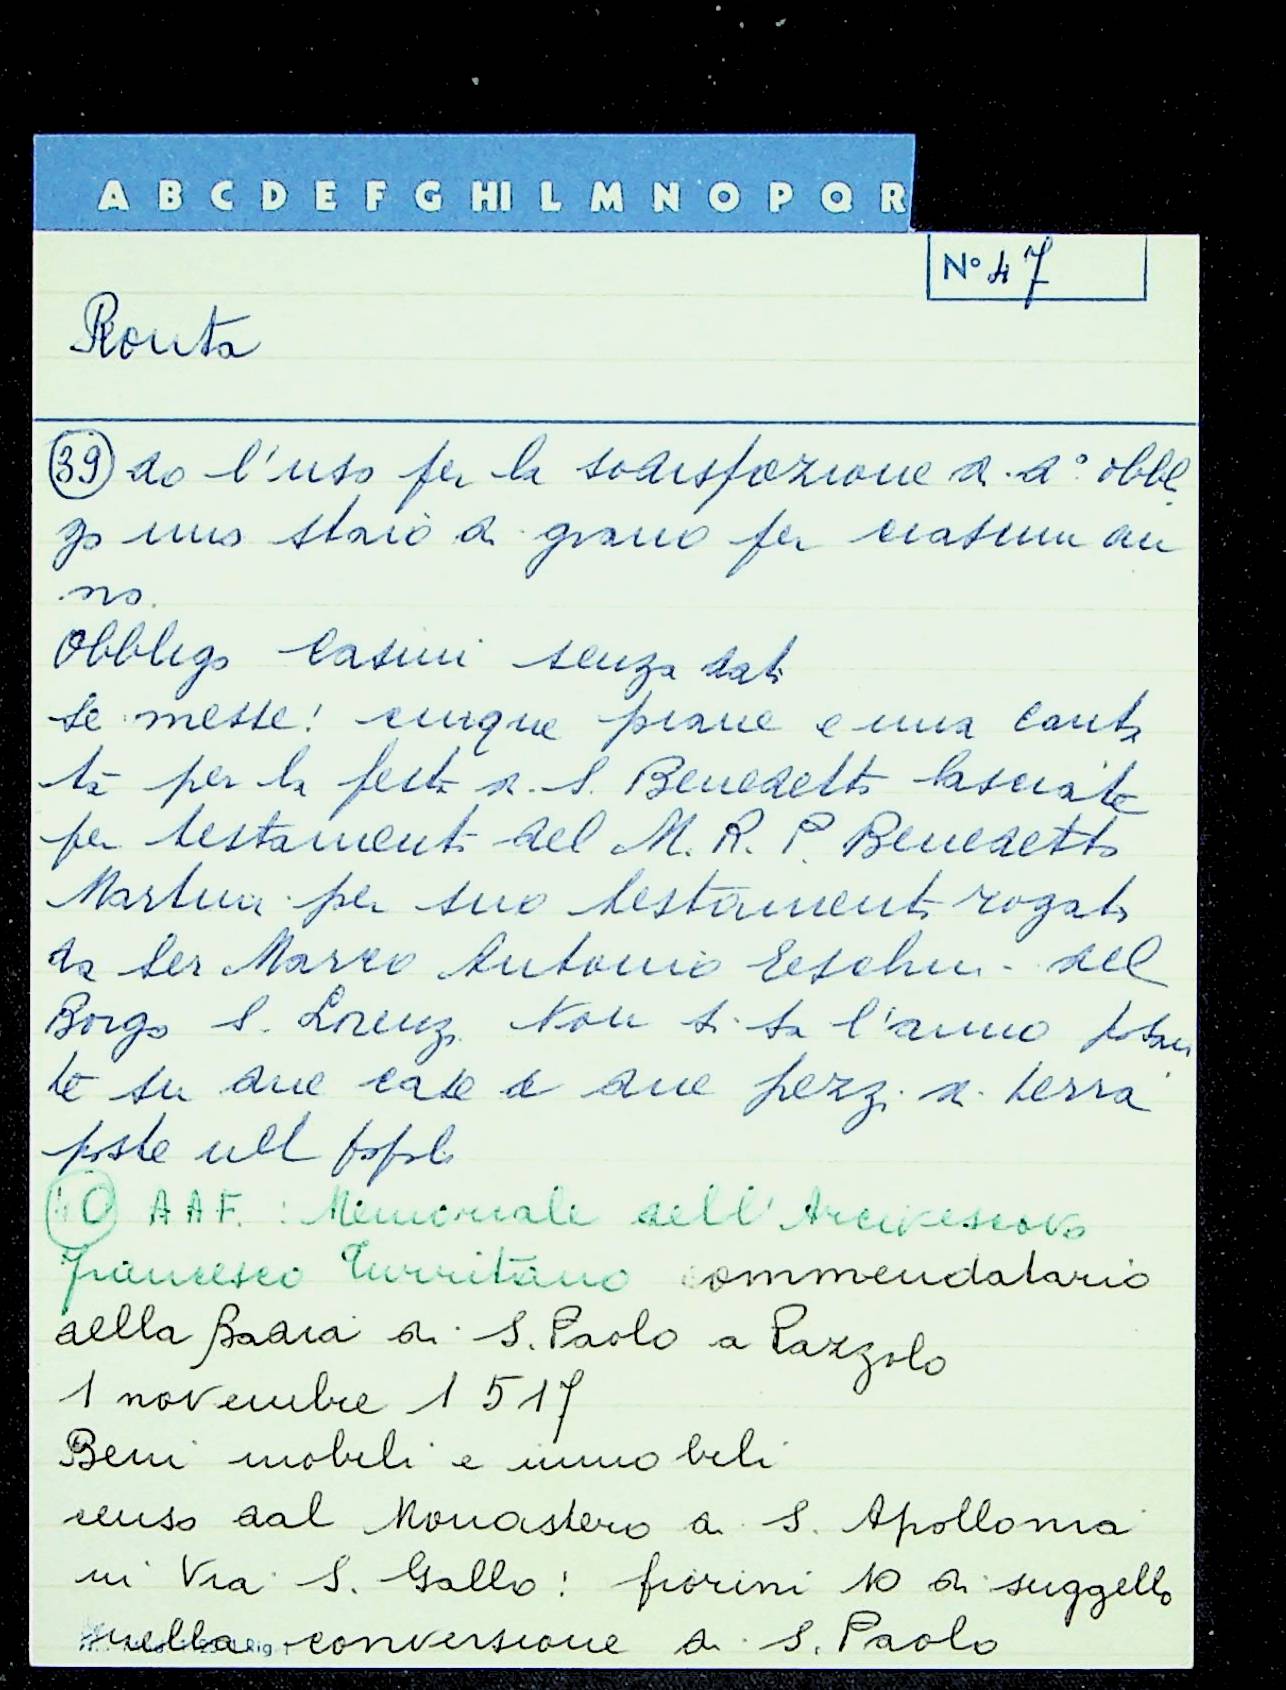 A B C D E F G HI L M N O P Q R
N° 47
Ronta
39 do l'uso per la sodisfazione di d° obbl
go uno staio di grano per ciascun an
no.
Obbligo Casini senza dat
Se messe: cinque piane e una canta
ta per la festa di S. Benedetto lasciate
per testamento del M. R. P. Benedetto
Martini per suo testamento rogato
da Ser Marco Antonio del
Borgo S. Lorenzo Non si sa l'anno posan
te su due case e due pezzi di terra
poste nel popolo
40 A A F. : Memoriale dell'Arcivescovo
Francesco Turritano commendatario
della Badia di S. Paolo a Razzolo
1 novembre 1517
Beni mobili e immobili
censo dal Monastero di S. Apollonia
in Via S. Gallo: fiorini 10 di suggello
nella conversione di S. Paolo